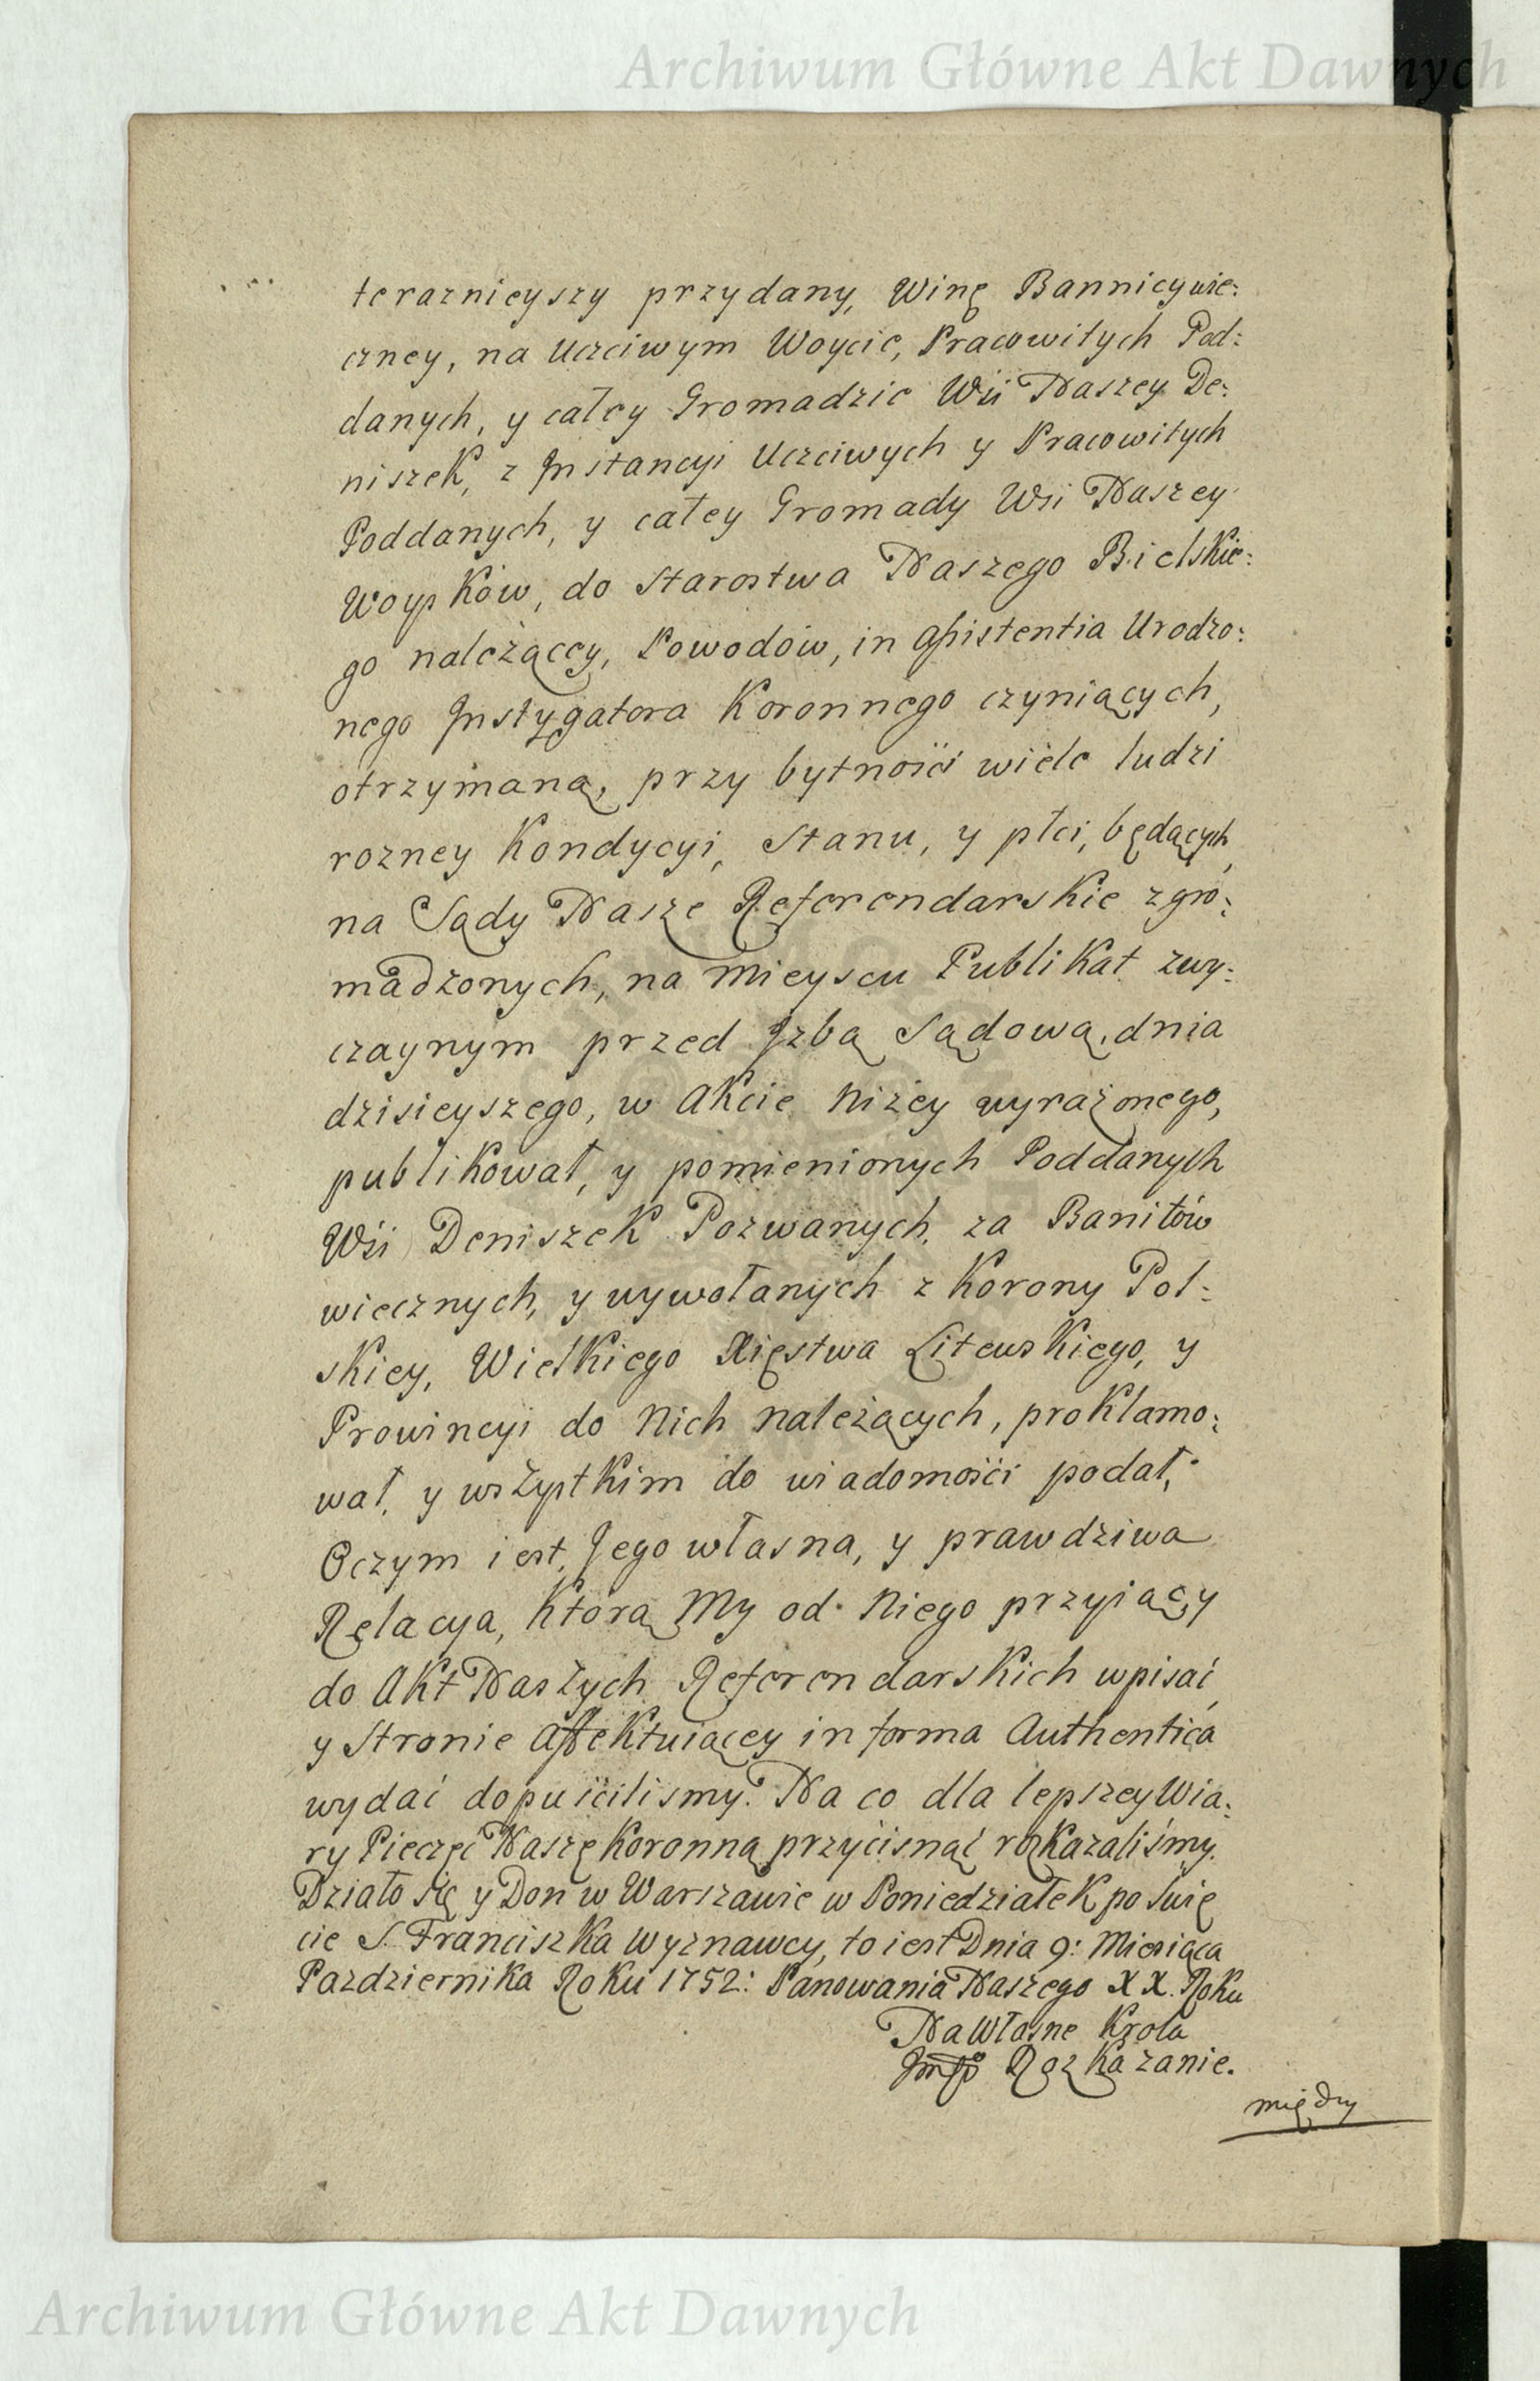 Archiwum Główne Akt Dawnych
teraznieyszy przydany, Winę Bannicyi wie:
czney, na Uczciwym Woycie, Pracowitych Pod:
danych, y całey Gromadzie Wśi Naszey De:
niszek, z Instancyi Uczciwych y Pracowitych
Poddanych, y całey Gromady Wsi Naszey
Woyszków, do Starostwa Naszego Bielskie:
go należącey, Powodów, in assistentia Urodzo:
nego Instygatora Koronnego czyniących,
otrzymaną, przy bytności wiele ludzi
rozney Kondycyi, Stanu, y płci, będących,
na Sądy Nasze Referendarskie zgro:
madzonych, na Mieyscu Publikat zwy:
czaynym przed Izbą Sądową, dnia
dzisieyszego, w Akcie niżey wyrażonego,
publikował, y pomienionych Poddanych
Wśi Deniszek Pozwanych, za Banitów
wiecznych, y wywołanych z Korony Pol:
skiey, Wielkiego Xięstwa Litewskiego, y
Prowincyi do Nich należących, proklamo:
wał, y wszystkim do wiadomości podał,
Oczym iest, Jego własna, y prawdziwa
Relacya, którą My od Niego przyiąwszy
do Akt Naszych Referendarskich wpisać,
y Stronie Affektuiącey in forma Authentica
wydać dopuściliśmy. Na co dla lepszey Wia:
ry Pieczęć Naszę Koronną przyćisnąć rozkazaliśmy.
Działo się y Dan w Warszawie w Poniedziałek po Swię
cie S. Franciszka Wyznawcy, to iest Dnia 9: Miesiąca
Pazdziernika Roku 1752: Panowania Naszego XX. Roku
Na Własne Krola
Jmsci Rozkazanie.
między
Archiwum Główne Akt Dawnych